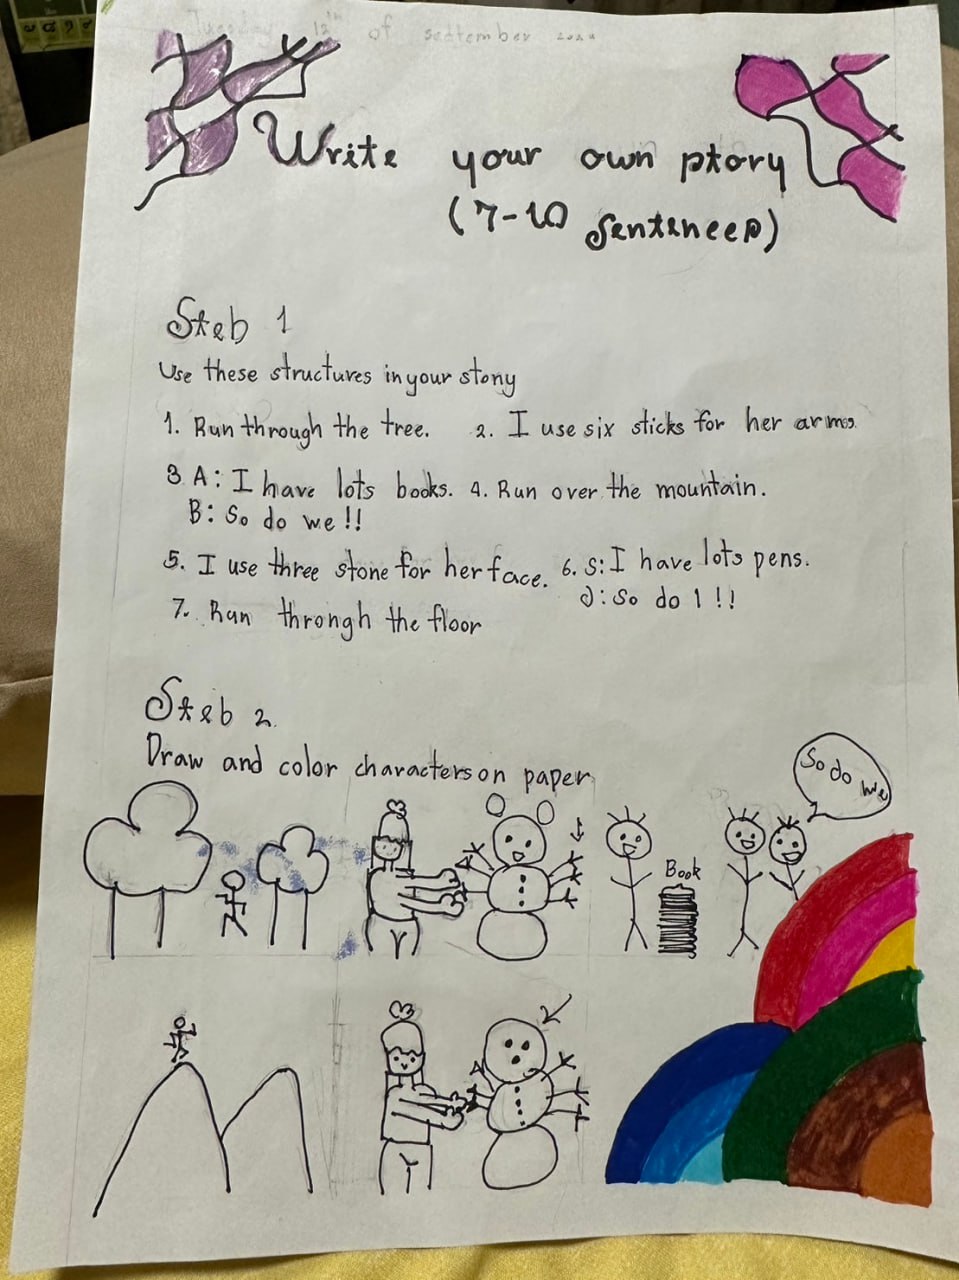 Tuesday 12th of sedtember
Write your own ptory
(7-10 Sentenceep)
Steb 1
Use these structures in your stony
1. Run through the tree. 2. I use six sticks for her arms.
3 A: I have lots books. 4. Run over the mountain.
B: So do we!!
5. I use three stone for her face. 6. S: I have lots pens.
J: So do I!!
7. Run throngh the floor
Steb 2.
Draw and color characters on paper
So do we
Book